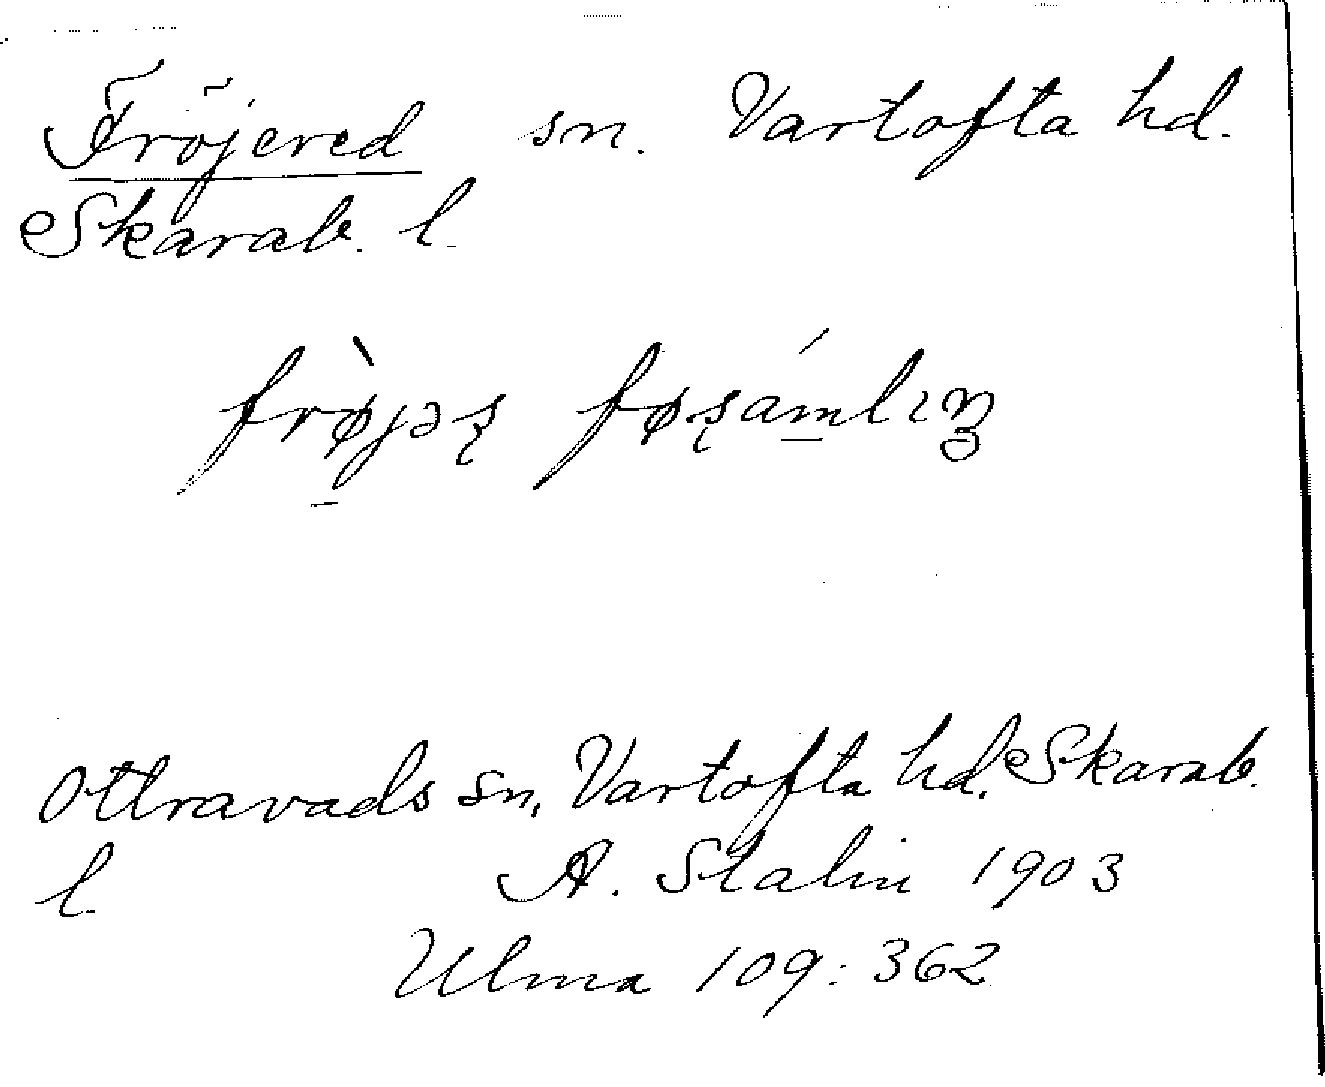 Fröjered sn. Vartofta hd.
Skarab. l.
frø̠̀jəʂ føʂám̠lıŋ
Ottravads sn, Vartofta hd. Skarab.
l. A. Stalin 1903
Ulma 109: 362